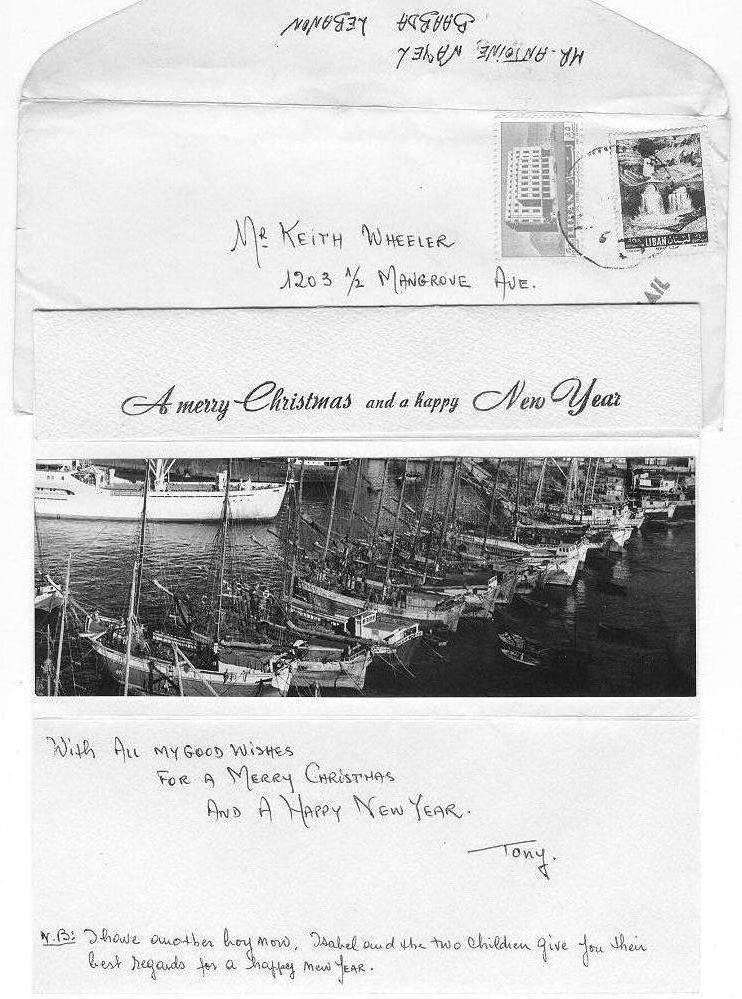 MR. ANTOINE WAYEL
BAABDA LEBANON
LIBAN
LIBAN لبنان
MR KEITH WHEELER
1203 1/2 MANGROVE AVE.
AIL
A merry Christmas and a happy New Year
With All MY GOOD WISHES
FOR A MERRY CHRISTMAS
AND A HAPPY NEW YEAR.
Tony.
N.B: I have another boy now, Isabel and the two children give you their
best regards for a happy new YEAR.